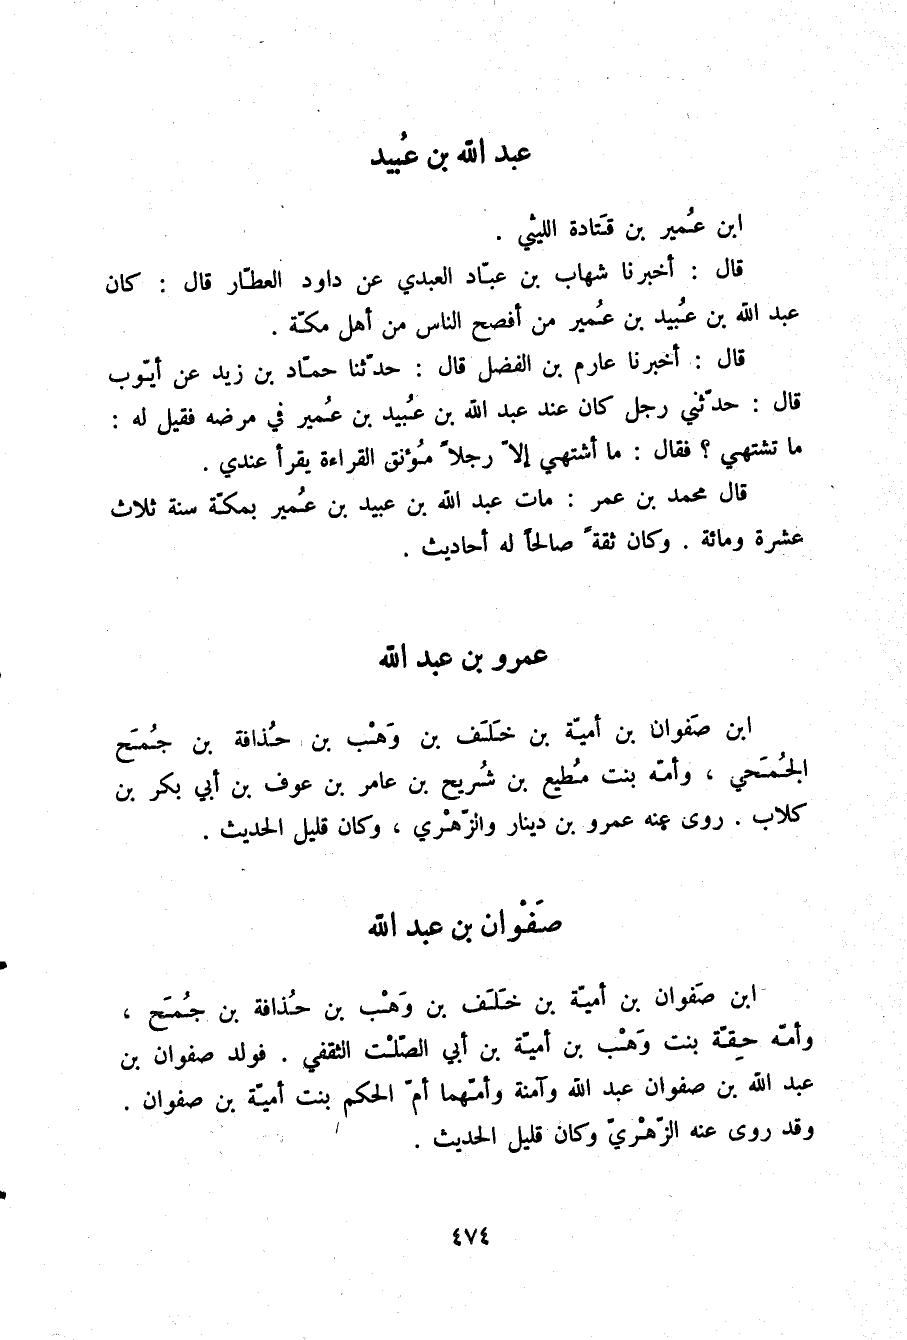 عبد الله بن عُبيد
ابن عُمير بن قَتادة الليثي .
قال : أخبرنا شهاب بن عبّاد العبدي عن داود العطّار قال : كان
عبد الله بن عُبيد بن عُمير من أفصح الناس من أهل مكّة .
قال : أخبرنا عارم بن الفضل قال : حدّثنا حمّاد بن زيد عن أيّوب
قال : حدّثني رجل كان عند عبد الله بن عُبيد بن عُمير في مرضه فقيل له :
ما تشتهي ؟ فقال : ما أشتهي إلاّ رجلاً مُؤنق القراءة يقرأ عندي .
قال محمد بن عمر : مات عبد الله بن عبيد بن عُمير بمكّة سنة ثلاث
عشرة ومائة . وكان ثقةً صالحاً له أحاديث .
عمرو بن عبد الله
ابن صَفوان بن أميّة بن خَلَف بن وَهْب بن حُذافة بن جُمَح
الجُمَحي ، وأمّه بنت مُطيع بن شُريح بن عامر بن عوف بن أبي بكر بن
كلاب . روى عنه عمرو بن دينار والزّهْري ، وكان قليل الحديث .
صَفْوان بن عبد الله
ابن صَفوان بن أميّة بن خَلَف بن وَهْب بن حُذافة بن جُمَح ،
وأمّه حِقّة بنت وَهْب بن أميّة بن أبي الصّلْت الثقفي . فولد صفوان بن
عبد الله بن صفوان عبد الله وآمنة وأمّهما أمّ الحكم بنت أميّة بن صفوان .
وقد روى عنه الزّهْريّ وكان قليل الحديث .
٤٧٤